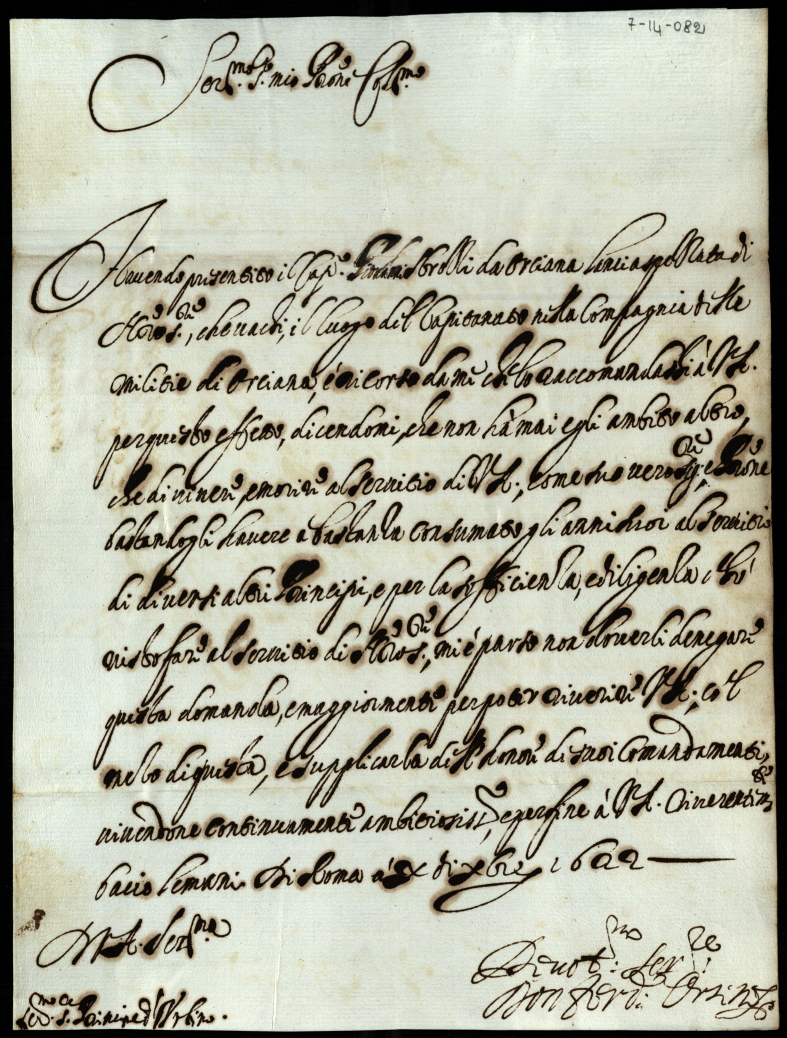 7-14-082
Ser.mo S.r mio P̃rone Col.mo
Havendo presentito il Cap.o Strozzi da Orciana lanciaspezzata di
che vachi, il luogo del Capitanato nella Compagnia delle
militie di Orciana, é ricorso da mé ch'lo raccomandassi à V.A.
per questo effetto, dicendomi, che non hà mai egli ambito altro,
che di vivere, e morire al servitio di V.A., come suo vero Sig.re, e P̃rone
bastandogli havere a bastanza consumato gli anni suoi al servitio
di diversi altri Principi, e per la sufficienza, e diligenza, ch'hò
visto fare al servitio di, mi é parso non doverli denegare
questa domanda, e maggiormente per poter riverire V.A., col
mezo di questa, e supplicarla del'honore di suoi Comandamenti,
vivendone continuamente ambitiosiss.o, e per fine à V.A. riverentem.te
bacio le mani. Di Roma à X di Xbre 1622
Di V.A. Ser.ma
Devot.mo Ser.re
Don Ferd.o Orsino
Ser.mo S. Principe d'Urbino.